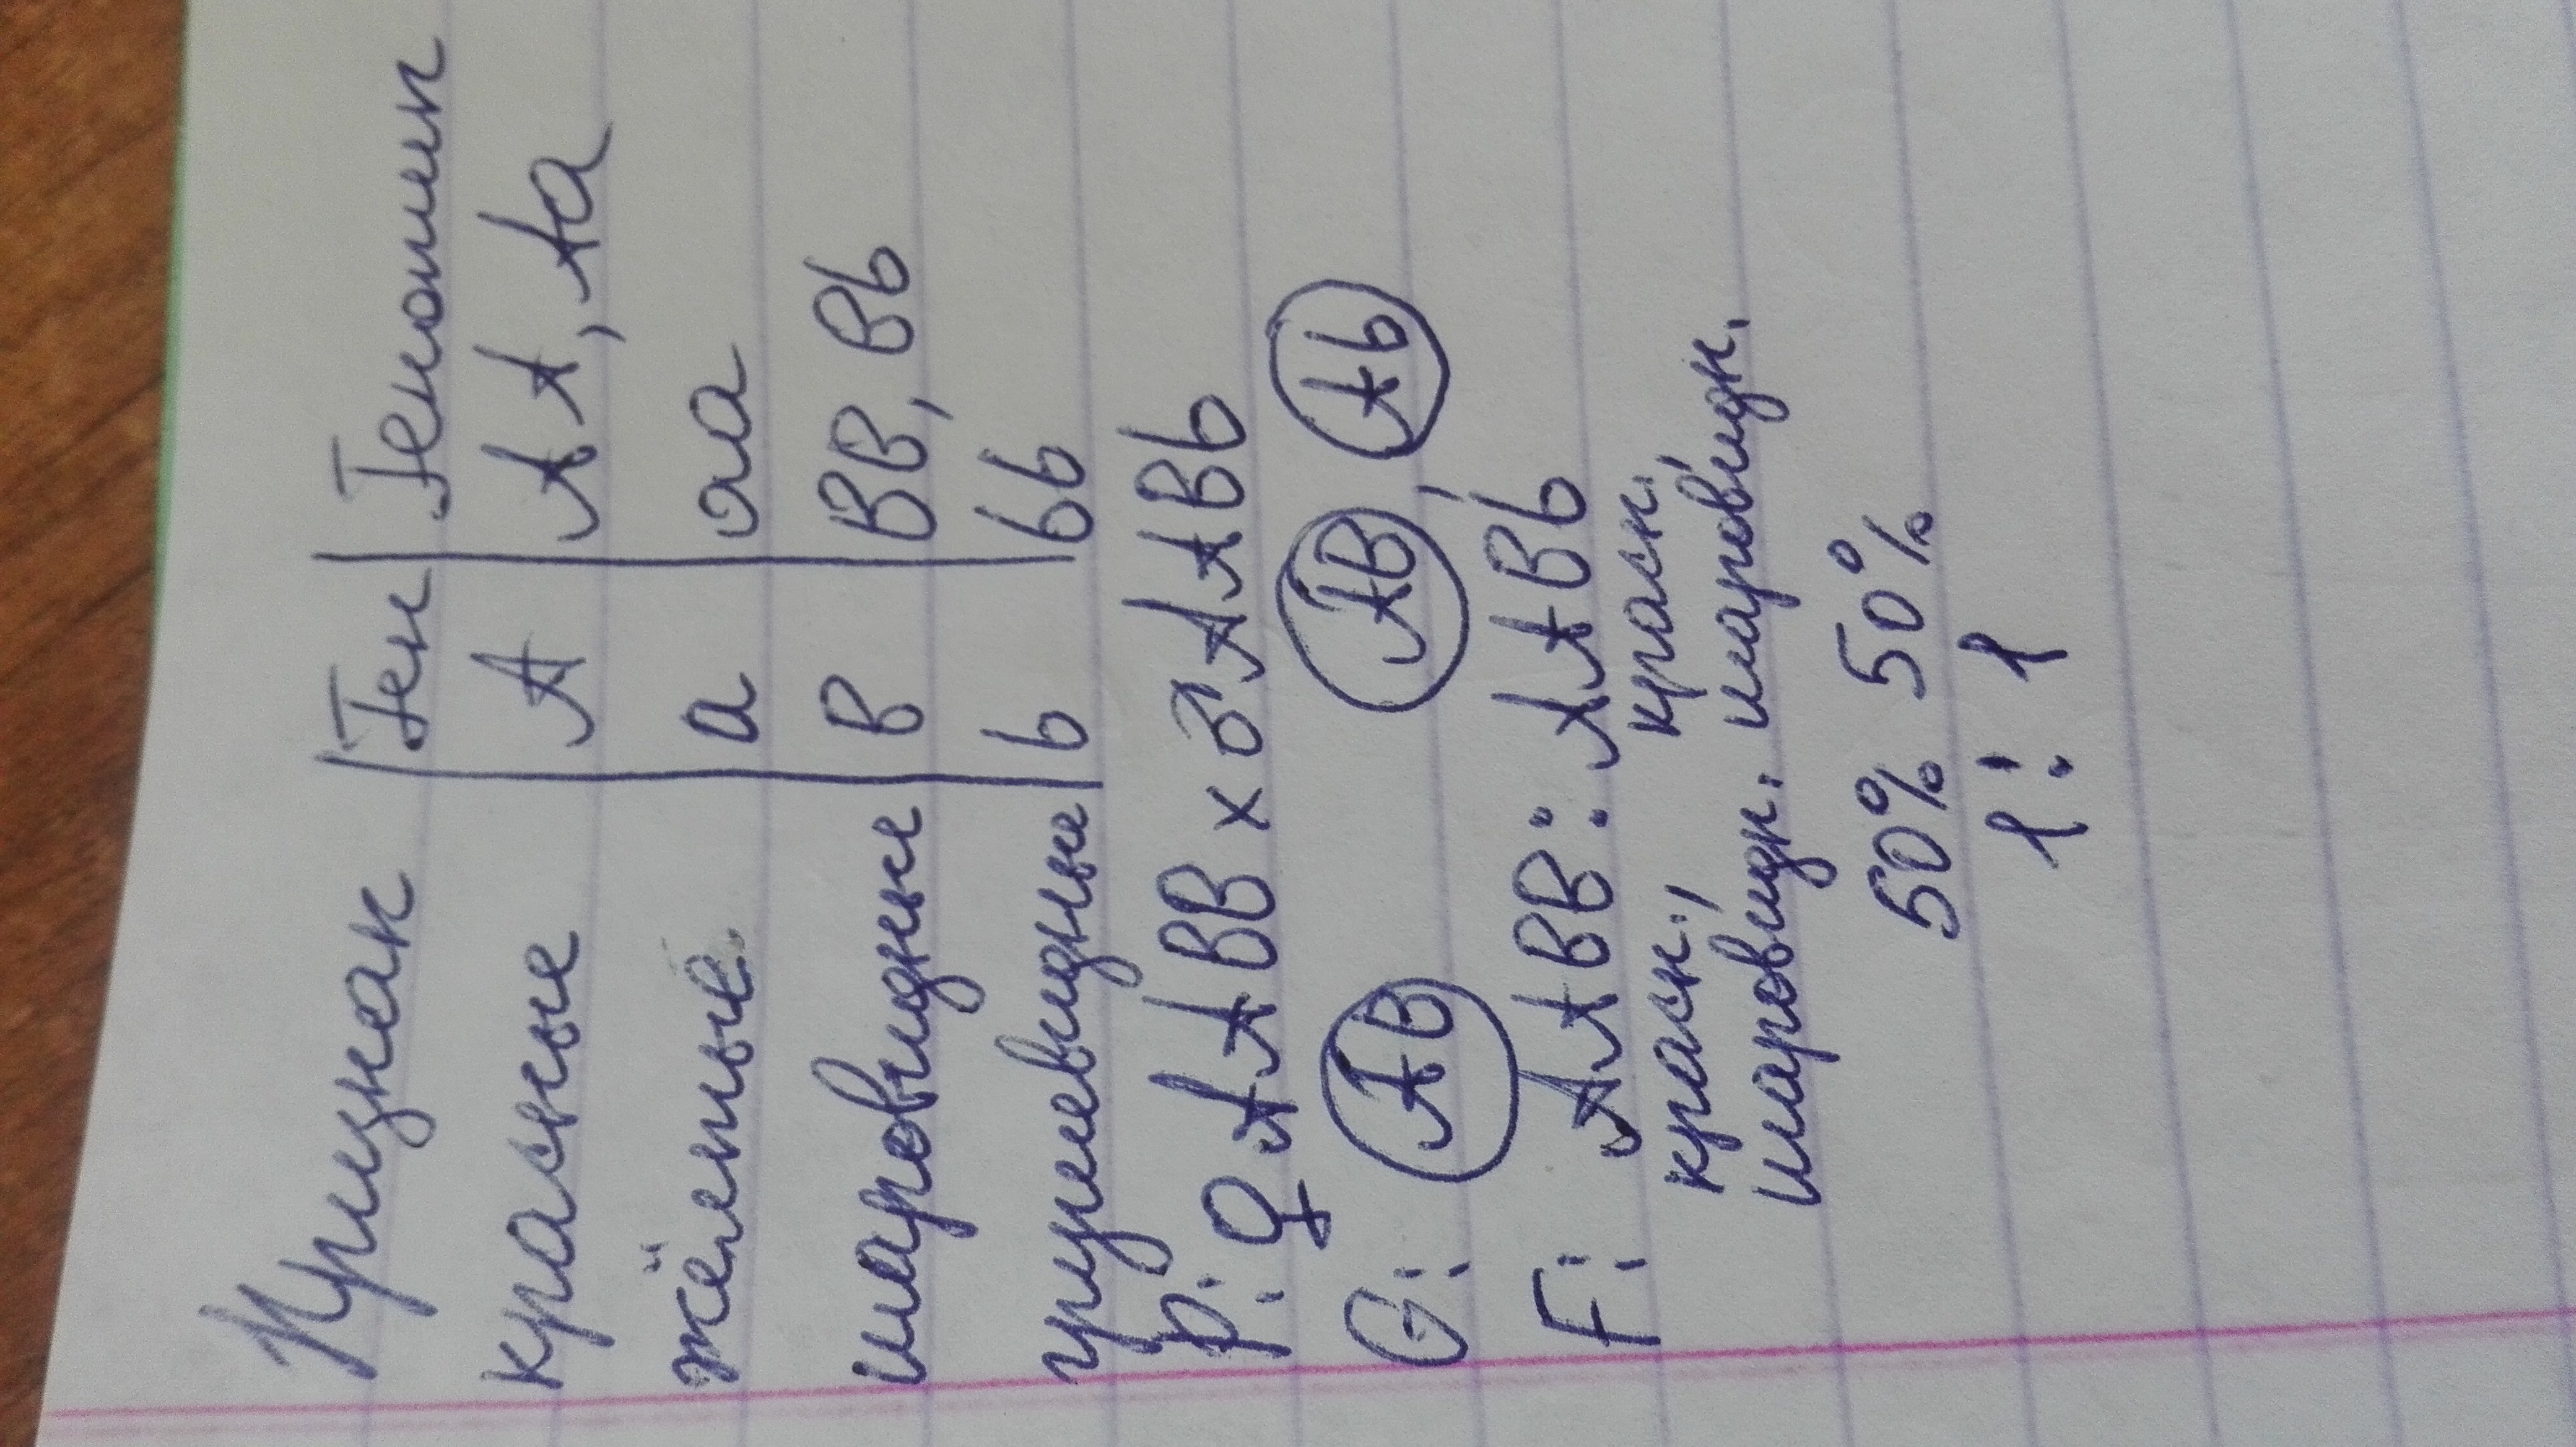 Признак | Ген | Генотип
красные | А | АА, Аа
жёлтые | а | аа
шаровидные | В | ВВ, Вb
грушевидные | b | bb
Р: ♀ ААВВ х ♂ ААВb
G: АВ АВ, Аb
F: ААВВ : ААВb
красн., красн.,
шаровидн. шаровидн.
50% 50%
1 : 1